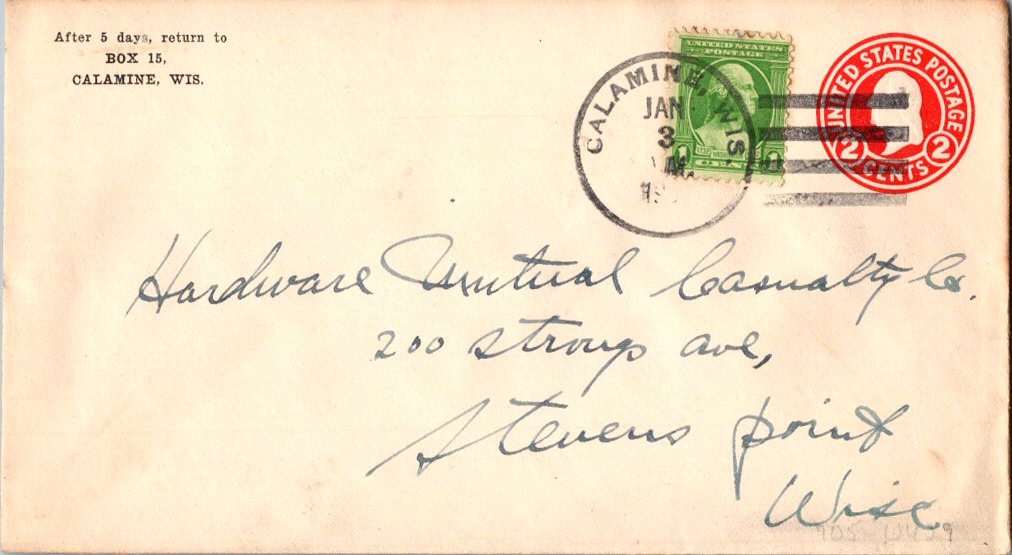 After 5 days, return to
BOX 15,
CALAMINE, WIS.
UNITED STATES
POSTAGE
1 CENT 1
CALAMINE, WIS
JAN
3
M.
19
UNITED STATES POSTAGE
2 CENTS 2
Hardware Mutual Casualty Co.
200 Strongs ave,
Stevens point
Wisc